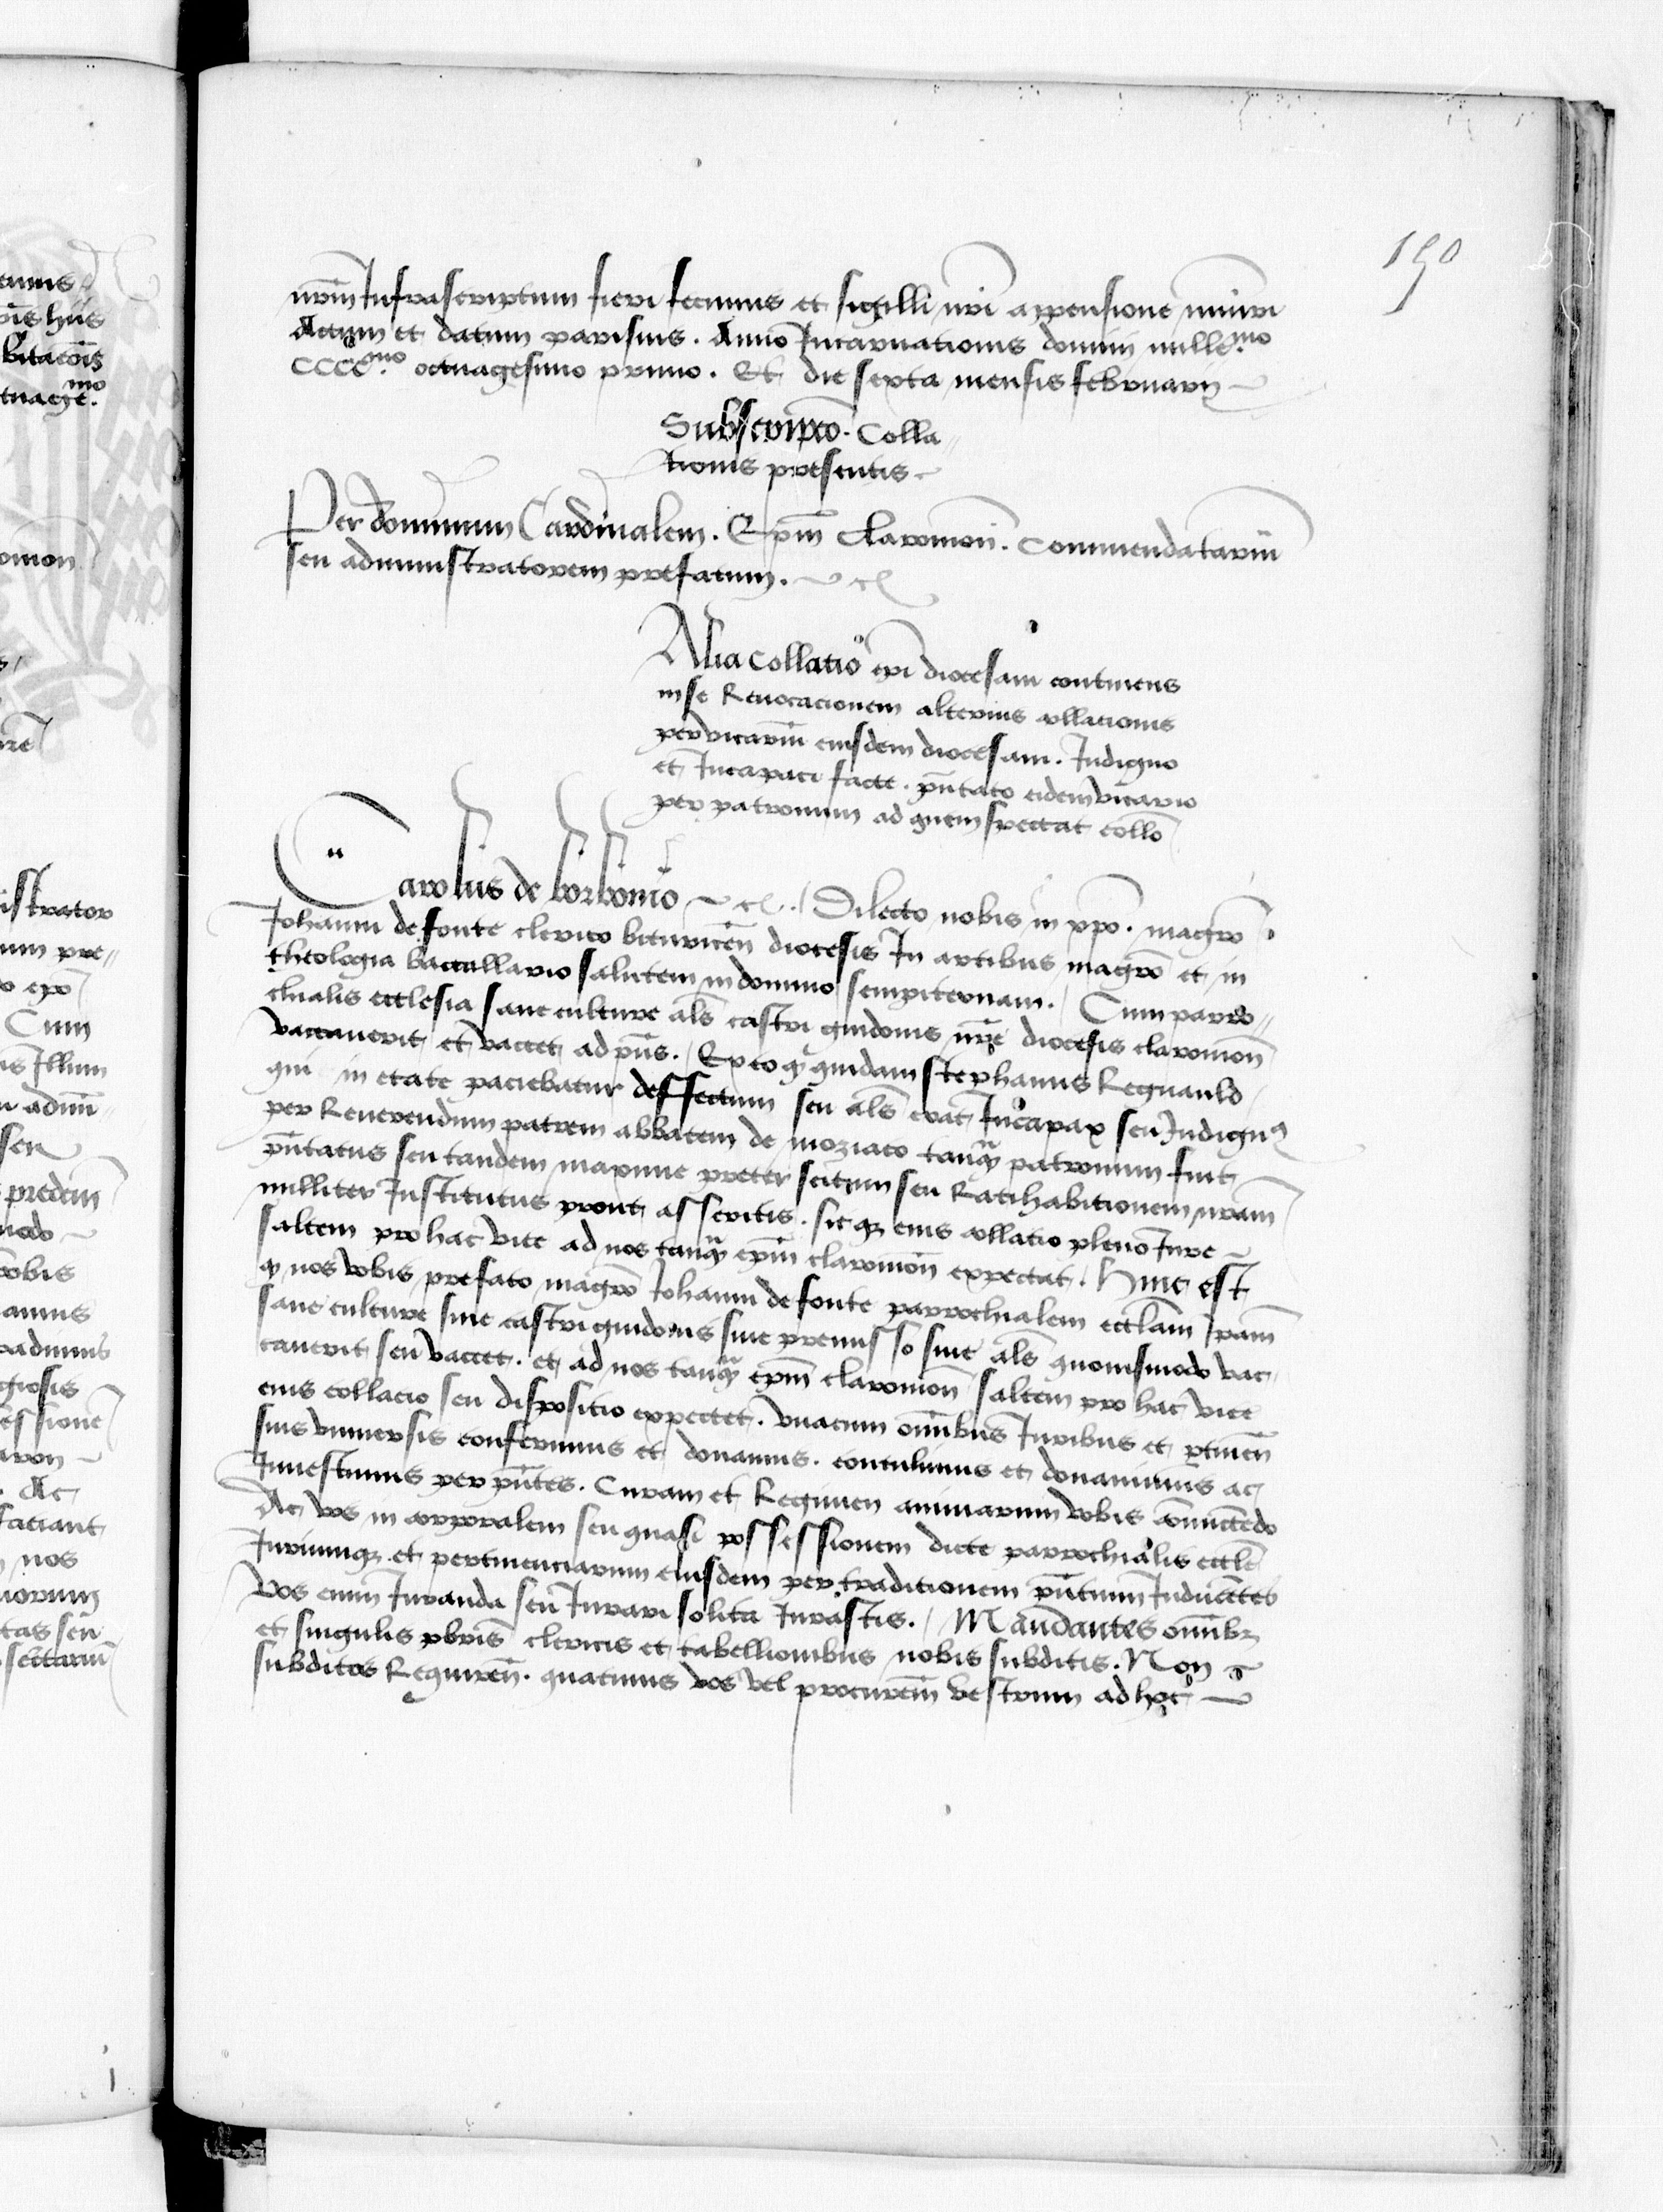 190
nr̃m Infrascriptum fieri fecimus et sigilli nr̃i appensione muniri
Actum et datum parisius . Anno Incarnationis domini mille.mo
CCCC.mo octuagesimo primo . Et die sexta mensis februarij
Subscripcõ . Colla
tionis presentis
Per dominum Cardinalem . Ep̃m Claromoñ . Commendatariũ
seu administratorem prefatum .
Alia Collatio ep̃i diocesani continens
in se Reuocacionem alterius collationis
per vicariũ eiusdem diocesani . Indigno
et Incapaci facte . pñtato eidem vicario
per patronum ad quem spectat collõ
Carolus de borbonio / Dilecto nobis in xp̃o . magr̃o
Iohanni de fonte clerico bituriceñ diocesis In artibus magr̃o et in
theologia baccallario salutem in domino sempiternam . / Cum parro
chialis ecclesia sane culture al̃s castri guidonis nr̃e diocesis claromoñ
vaccauerit et vaccet ad pñs . / Ex eo q̃ quidam stephanus Regnauld
qui in etate paciebatur deffectum seu al̃s erat Incapax seu Indignus
per Reuerendum patrem abbatem de moziaco tanq̃ patronum fuit
pñtatus seu tandem maxime preter scitum seu Ratihabitionem nr̃am
nulliter Institutus prout asseritis . sicq̃ eius collatio pleno Iure
saltem pro hac vice ad nos tanq̃ ep̃m claromoñ expectat . Hinc est
q̃ nos vobis prefato magr̃o Iohanni de fonte parrochialem eccl̃am ip̃am
sane culture siue castri guidonis siue premisso siue al̃s quouismodo vac
cauerit seu vaccet . et ad nos tanq̃ ep̃m claromoñ saltem pro hac vice
eius collacio seu dispositio expectet . vnacum om̃ibus Iuribus et p̱tineñ
suis vniuersis conferimus et donamus . contulimus et donauimus ac
Inuestimus per pñtes . Curam et Regimen animarum vobis com̃ictẽdo
Ac vos in corporalem seu quasi possessionem dicte parrochialis eccl̃e
Iuriumq̃ et pertinenciarum eiusdem per traditionem pñtium Inducẽtes
Vos enim Iuranda seu Iurari solita Iurastis . / Mandantes om̃ibz
et singulis pb̃ris clericis et tabellionibus nobis subditis . Non
subditos Requireñ . quatinus vos vel procurem̃ vestrum ad hoc